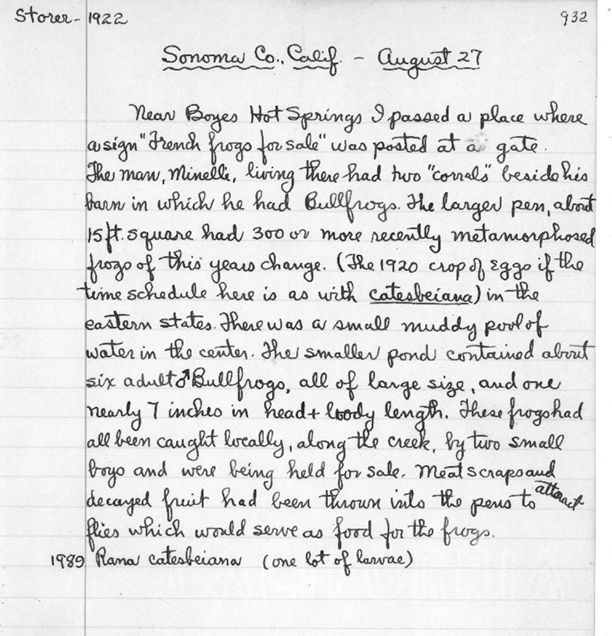 Storer - 1922 932
Sonoma Co., Calif. - August 27
Near Boyes Hot Springs I passed a place where
a sign "French frogs for sale" was posted at a gate.
The man, Minelli, living there had two "corrals" beside his
barn in which he had Bullfrogs. The larger pen, about
15 ft. square had 300 or more recently metamorphosed
frogs of this years change. (The 1920 crop of eggs if the
time schedule here is as with catesbeiana) in the
eastern states. There was a small muddy pool of
water in the center. The smaller pond contained about
six adult ♂ Bullfrogs, all of large size, and one
nearly 7 inches in head + body length. These frogs had
all been caught locally, along the creek, by two small
boys and were being held for sale. Meat scraps and
decayed fruit had been thrown into the pens to attract
flies which would serve as food for the frogs.
1989 Rana catesbeiana (one lot of larvae)